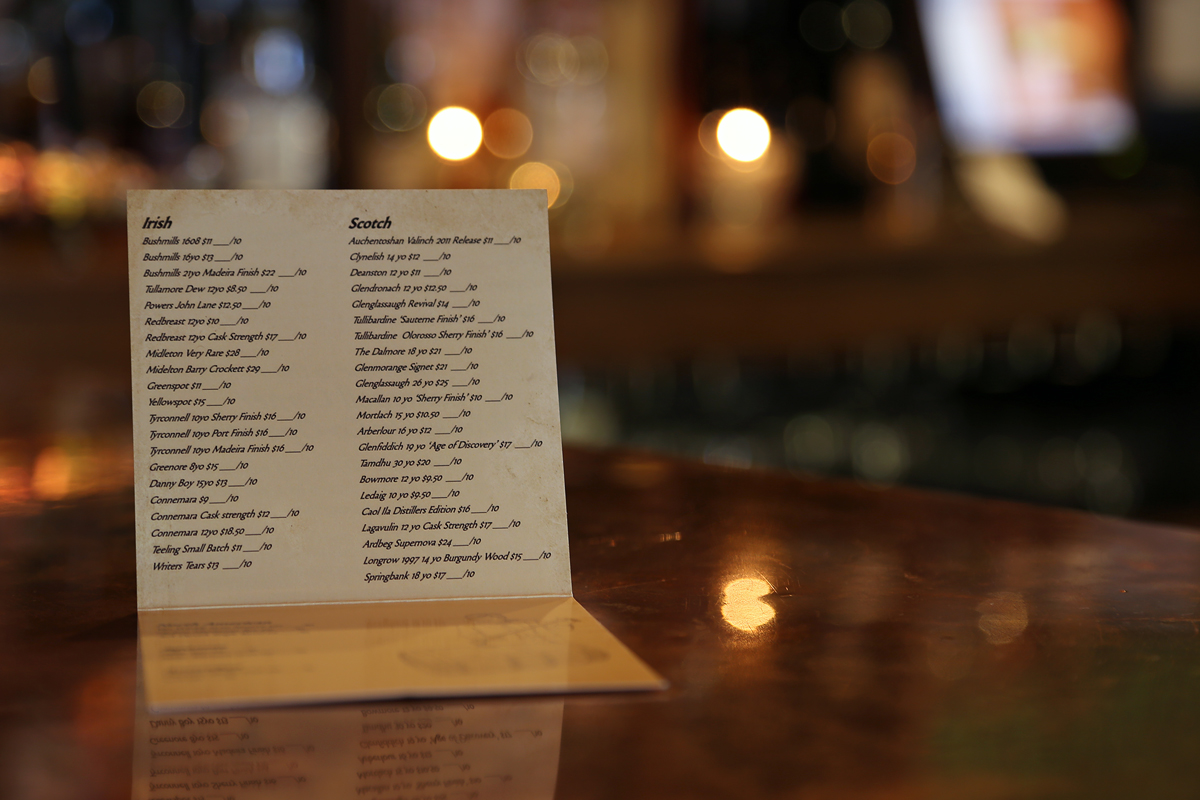 Irish
Bushmills 1608 $11 ___/10
Bushmills 16yo $13 ___/10
Bushmills 21yo Madeira Finish $22 ___/10
Tullamore Dew 12yo $8.50 ___/10
Powers John Lane $12.50 ___/10
Redbreast 12yo $10 ___/10
Redbreast 12yo Cask Strength $17 ___/10
Midleton Very Rare $28 ___/10
Midelton Barry Crockett $29 ___/10
Greenspot $11 ___/10
Yellowspot $15 ___/10
Tyrconnell 10yo Sherry Finish $16 ___/10
Tyrconnell 10yo Port Finish $16 ___/10
Tyrconnell 10yo Madeira Finish $16 ___/10
Greenore 8yo $15 ___/10
Danny Boy 15yo $13 ___/10
Connemara $9 ___/10
Connemara Cask strength $12 ___/10
Connemara 12yo $18.50 ___/10
Teeling Small Batch $11 ___/10
Writers Tears $13 ___/10
Scotch
Auchentoshan Valinch 2011 Release $11 ___/10
Clynelish 14 yo $12 ___/10
Deanston 12 yo $11 ___/10
Glendronach 12 yo $12.50 ___/10
Glenglassaugh Revival $14 ___/10
Tullibardine 'Sauterne Finish' $16 ___/10
Tullibardine Olorosso Sherry Finish' $16 ___/10
The Dalmore 18 yo $21 ___/10
Glenmorange Signet $21 ___/10
Glenglassaugh 26 yo $25 ___/10
Macallan 10 yo 'Sherry Finish' $10 ___/10
Mortlach 15 yo $10.50 ___/10
Arberlour 16 yo $12 ___/10
Glenfiddich 19 yo 'Age of Discovery' $17 ___/10
Tamdhu 30 yo $20 ___/10
Bowmore 12 yo $9.50 ___/10
Ledaig 10 yo $9.50 ___/10
Caol Ila Distillers Edition $16 ___/10
Lagavulin 12 yo Cask Strength $17 ___/10
Ardbeg Supernova $24 ___/10
Longrow 1997 14 yo Burgundy Wood $15 ___/10
Springbank 18 yo $17 ___/10